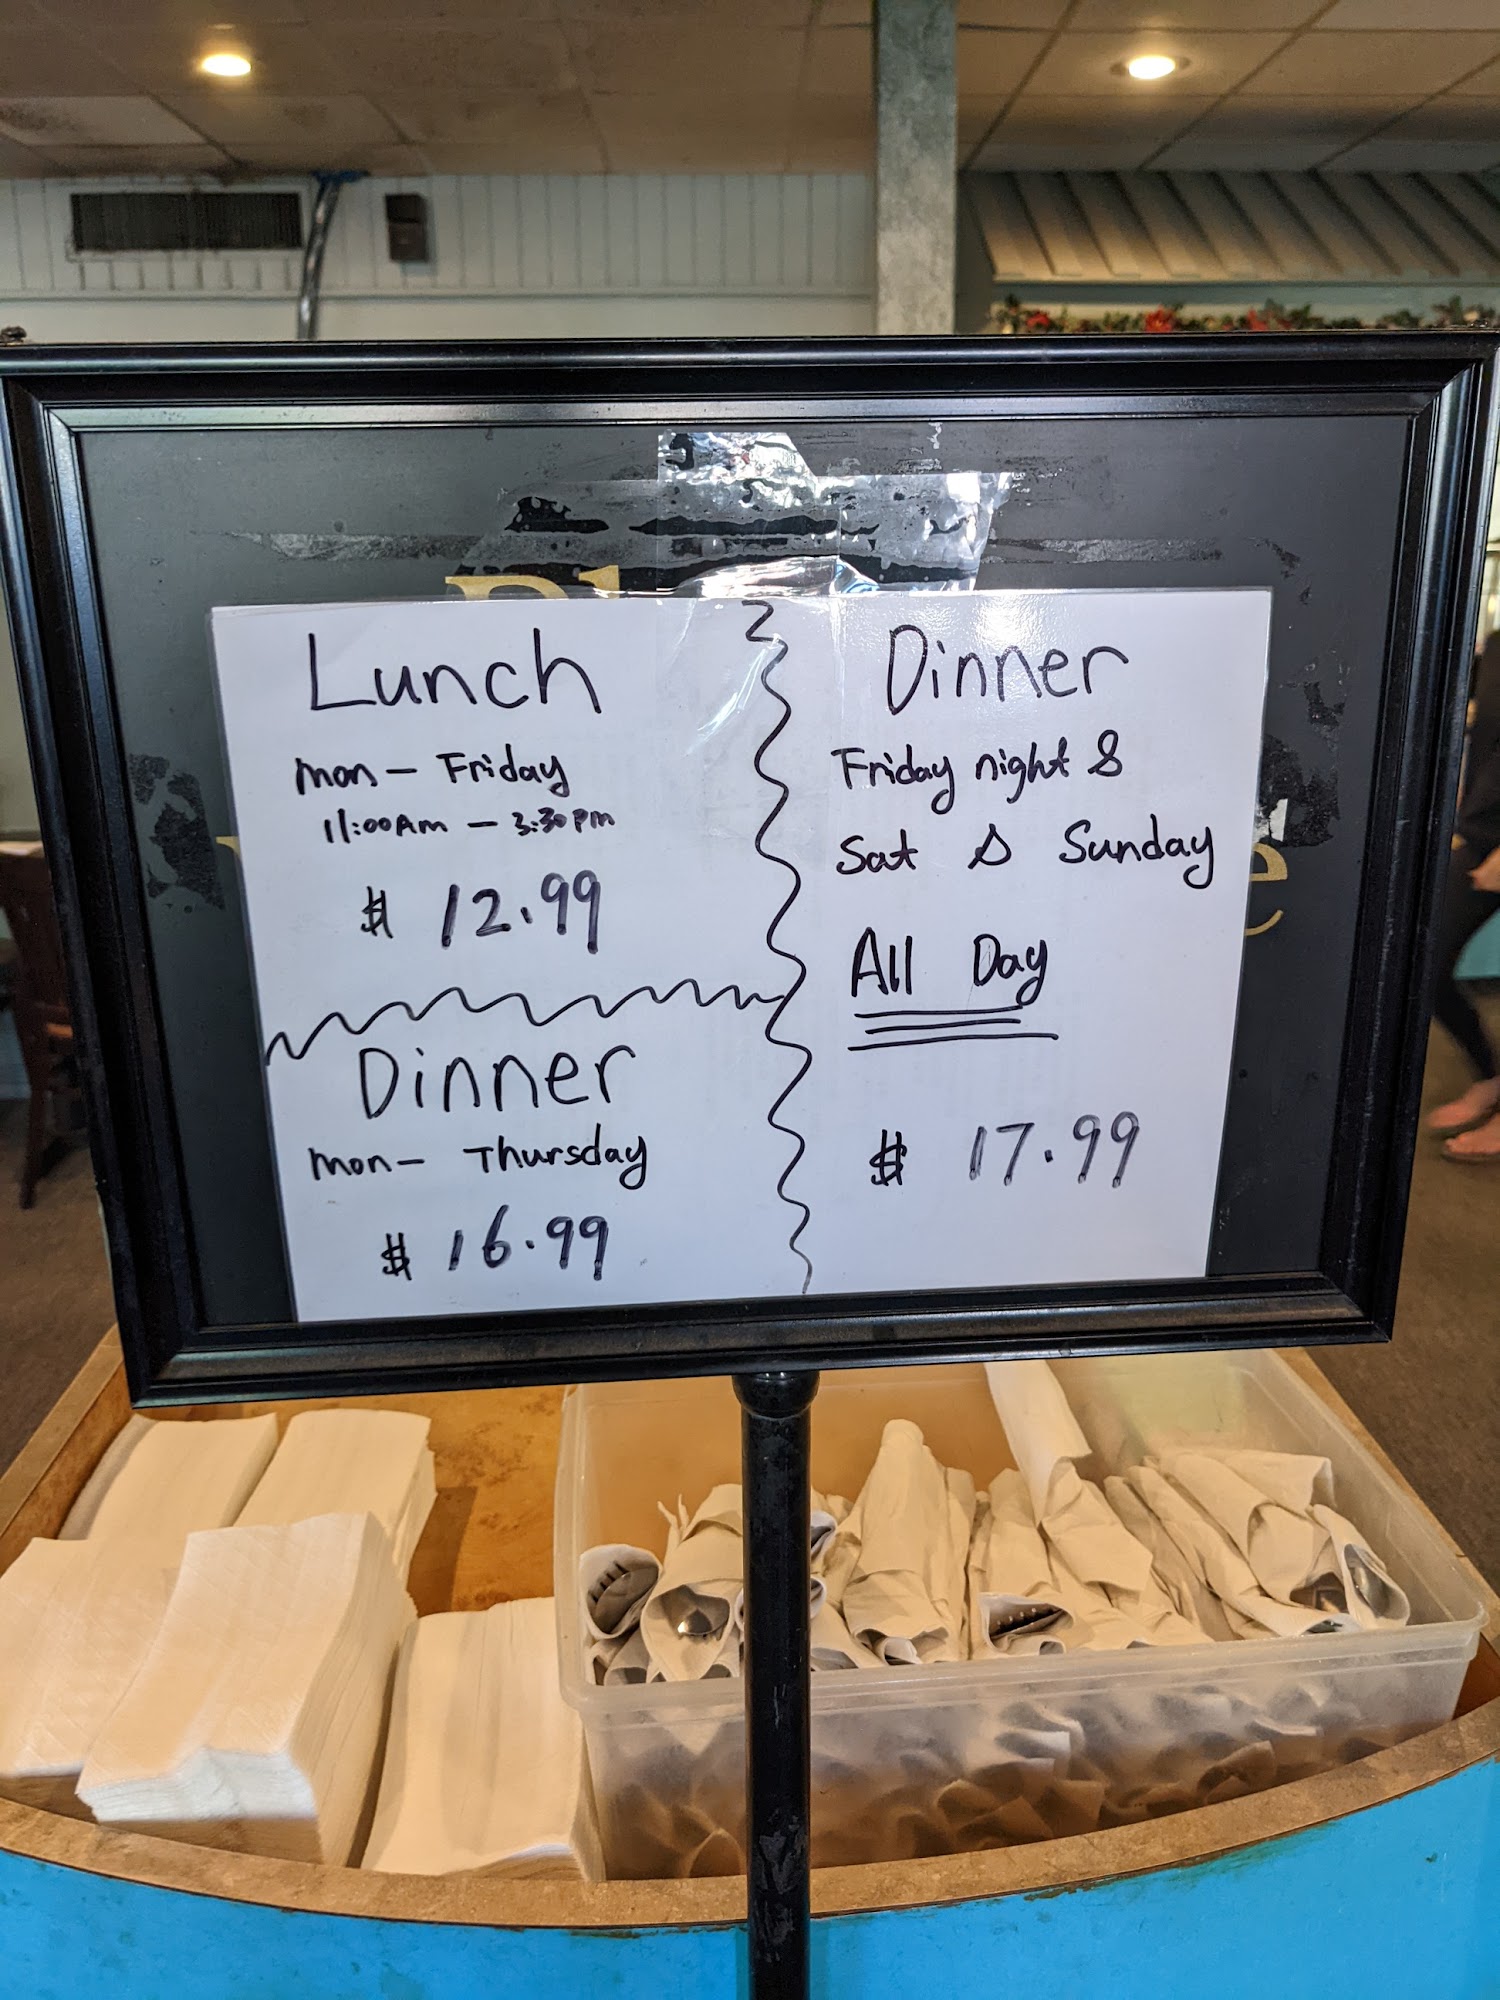 Lunch
mon - Friday
11:00AM - 3:30pm
$ 12.99
Dinner
mon- Thursday
$ 16.99
Dinner
Friday night &
Sat & Sunday
All Day
$ 17.99